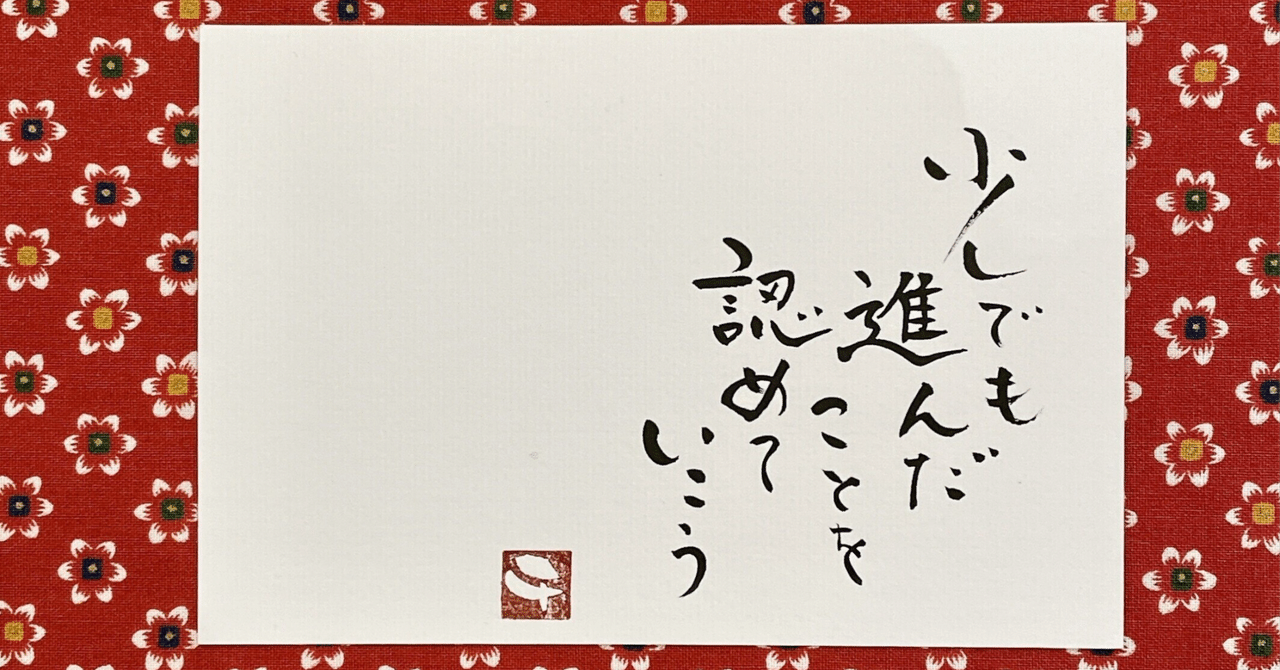 少しでも
進んだ
ことを
認めて
いこう